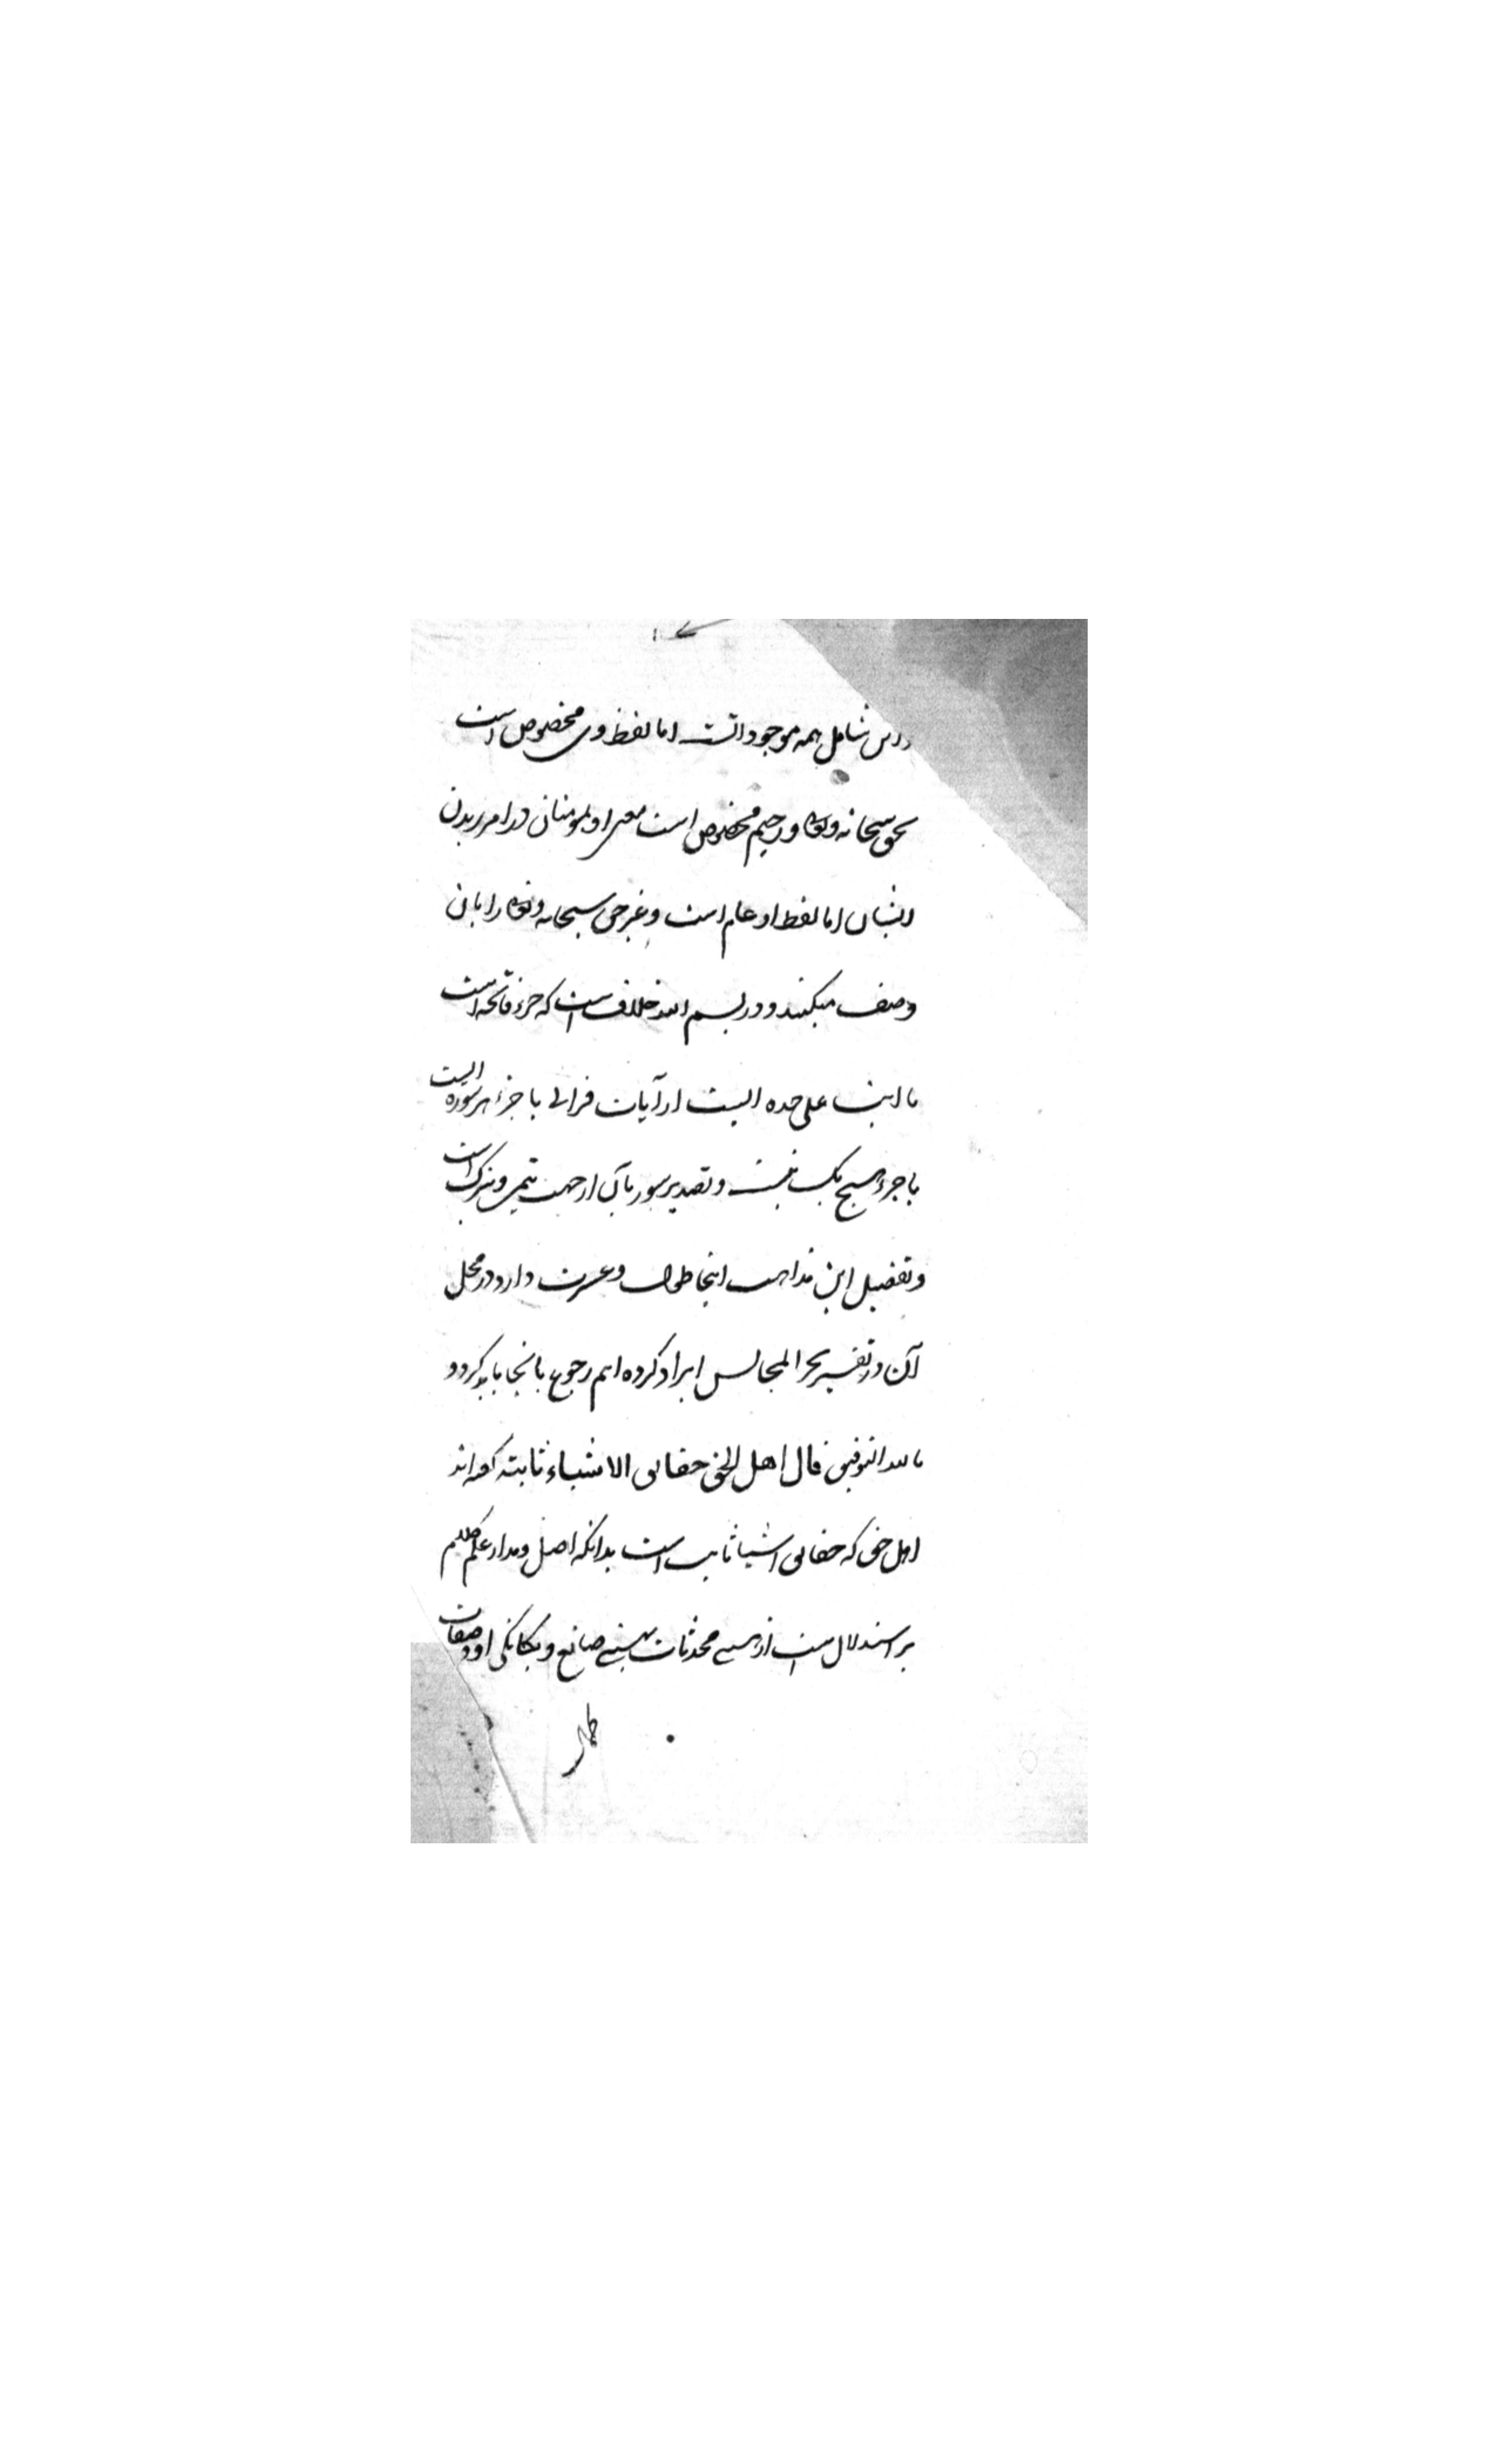 شامل همه موجوداتست اما لفظ وی مخصوص است
بحق سبحانه وتعالی ورحیم مخصوص است معنی او بمومنان در امرزیدن
ایشان اما لفظ او عام است وغیر حق سبحانه وتعالی را بان
وصف میکنند ودر بسم الله خلاف است که جزء فاتحه است
یا این علی حده ایست از آیات قرانی یا جزء هر سوره ایست
یا جزء هیچ یک نیست وتصدیر سور بآن از جهت تیمن وتبرک است
وتفصیل این مذاهب اینجا طول وعسرت دارد در محل
آن در تفسیر بحر المجالس ایراد کرده ایم رجوع بانجا باید کرد و
بالله التوفیق قال اهل الحق حقایق الاشیاء ثابتة گفته اند
اهل حق که حقایق اشیا ثابت است بدانکه اصل ومدار علم کلام
بر استدلال است از هستی محدثات بهستی صانع ویکانکی او وصفات